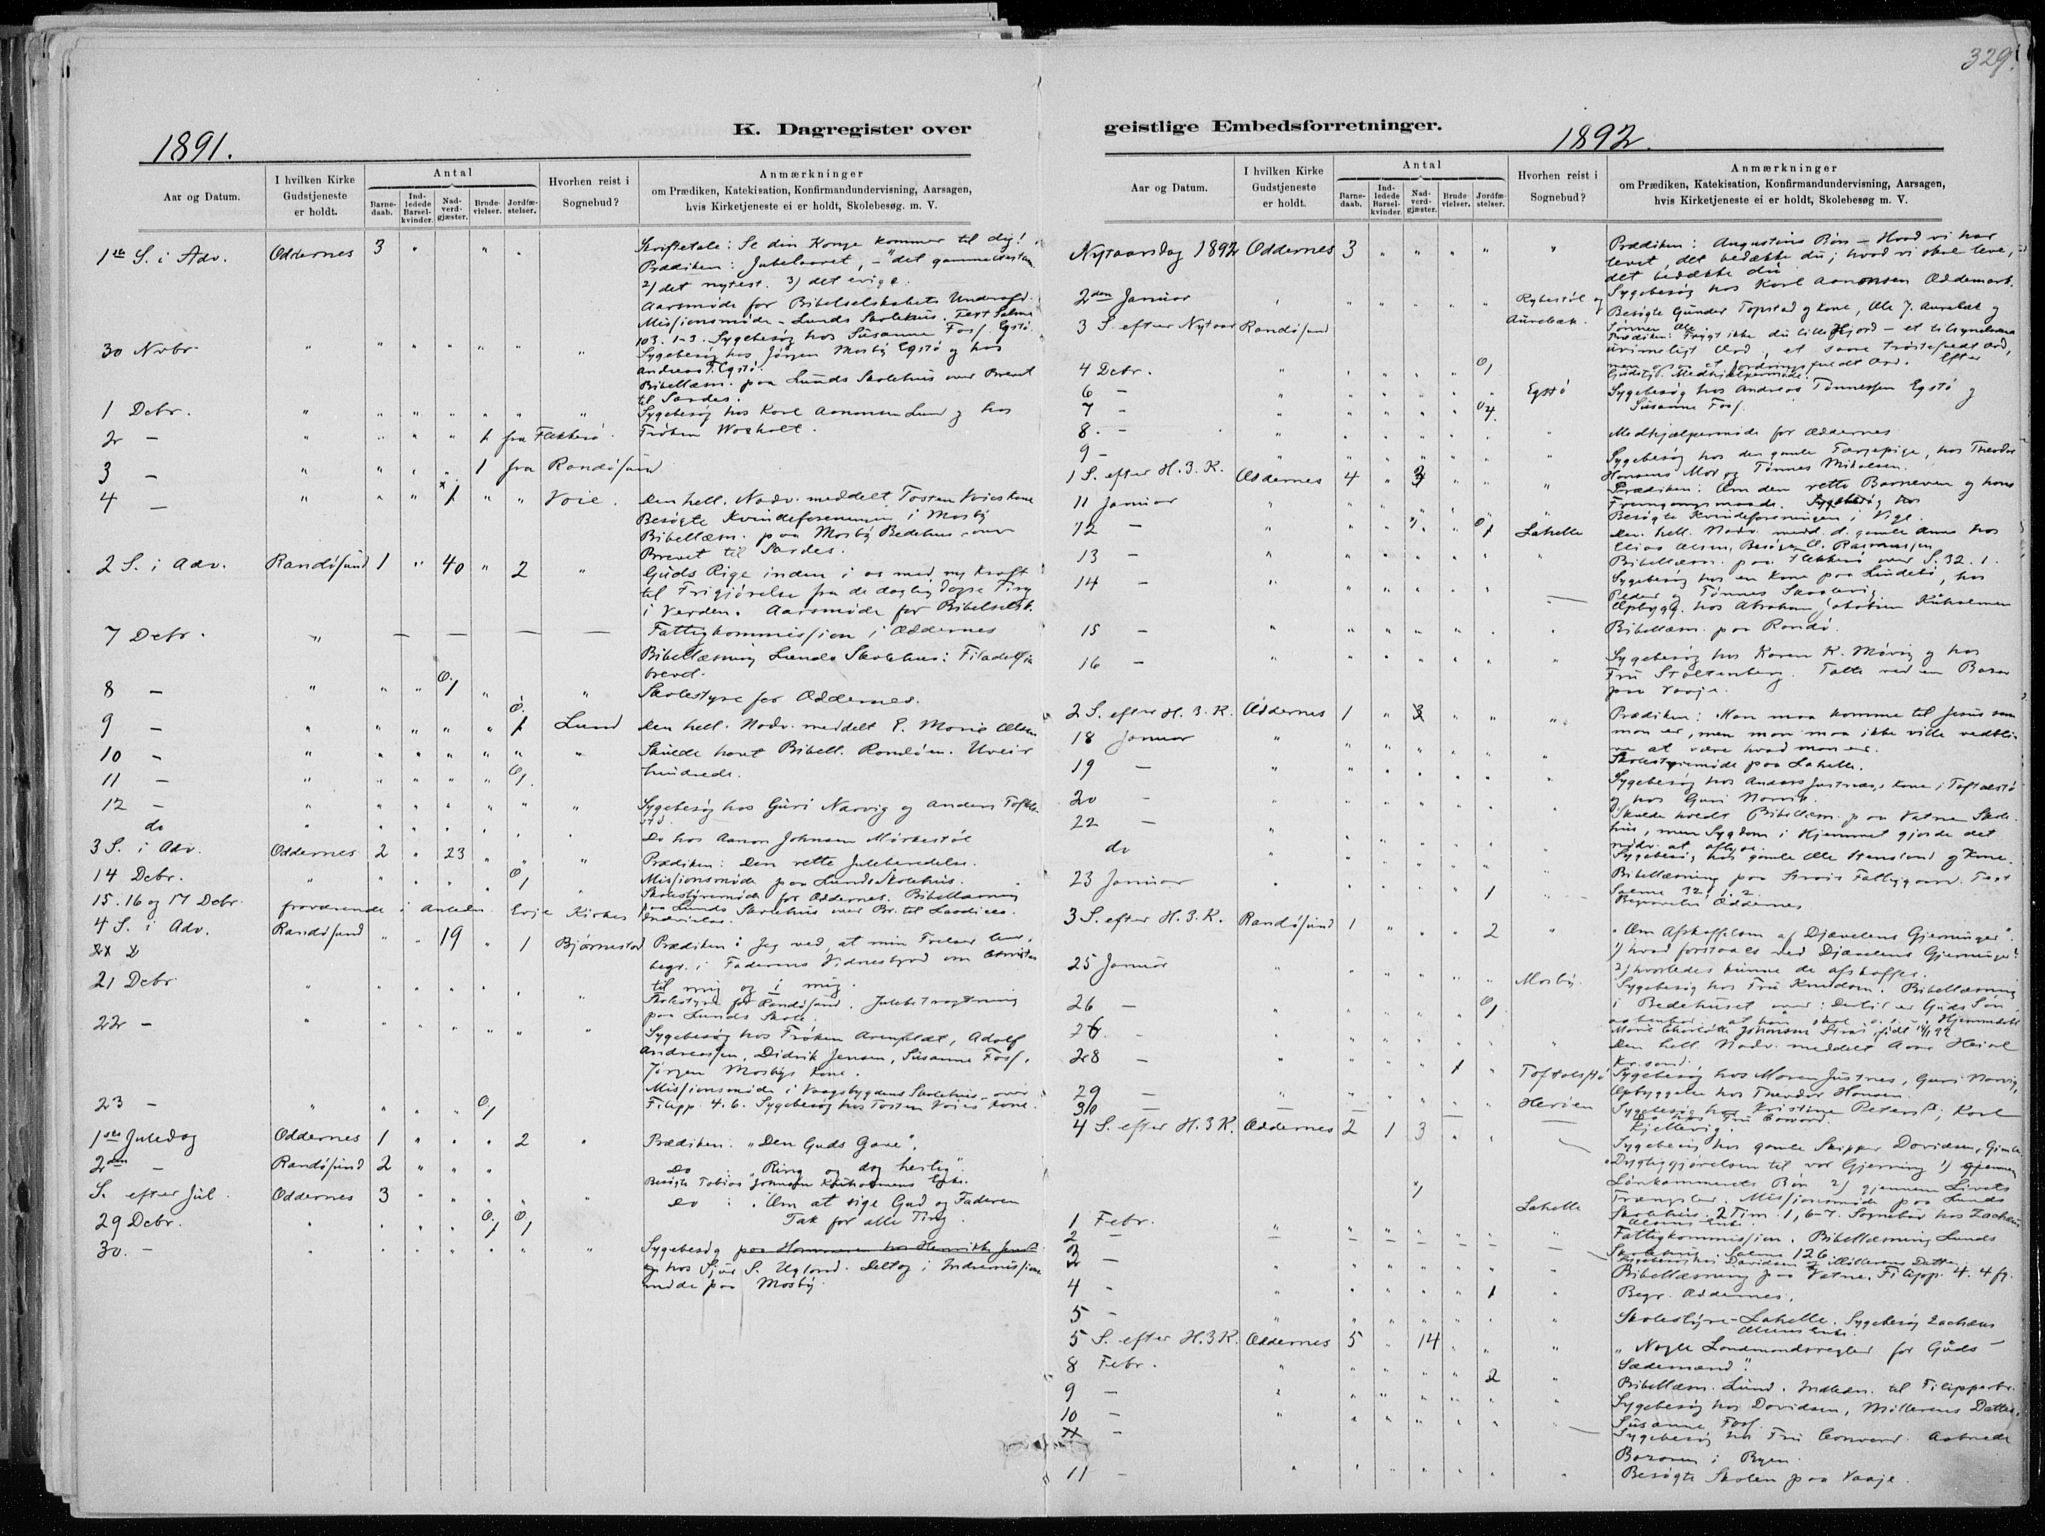 329.
K. Dagregister over
1891.
Aar og Datum.
I hvilken Kirke Gudstjeneste er holdt.
Antal
Barne-daab.
Ind-ledede Barsel-kvinder.
Nad-verd-gjæster.
Brude-vielser.
Jordfæ-stelser.
Hvorhen reist i Sognebud?
Anmærkninger
om Prædiken, Katekisation, Konfirmandundervisning, Aarsagen,
hvis Kirketjeneste ei er holdt, Skolebesøg. m. V.
1ste S. i Adv. Oddernes 3 " " " Skriftetale: Se din Konge kommer til dig!
Prædiken: Jubelaaret, - "det gammeltestam.
2) det nytest. 3) det evige.
Aarsmøde for Bibelselskabets Underafd.
Missionsmøde - Lunds Skolehus. Text Salme
103. 1-3. Sygebesøg hos Susanne Foss, Egstø.
30 Novbr. " " " " " " " Sygebesøg hos Jørgen Mosby Egstø og hos
Andreas T. Egstø.
Bibellæsn. paa Lunds Skolehus over Brevet
til Sardes.
1 Debr. " " " " " " " Sygebesøg hos Karl Aanonsen Lund og hos
2 — " " " " 1 fra Flekkerø. Frøken
3 — " " " " 1 fra Randøsund
4 — " " " 1 " " Voie. Den hell. Nadv. meddelt Tosten Voies Kone
Besøgte Kvindeforeningen i Mosby
Bibellæsn. paa Mosby Bedehus over
Brevet til Sardes.
2 S. i Adv. Randøsund 1 " 40 " 2 " Guds Rige inden i os med ny Kraft
til Frigjørelse fra de daglig
i Verden. Aarsmøde for Bibelselsk.
7 Debr. " — — — — — — Fattigkommission i Oddernes
Bibellæsning Lunds Skolehus: Filadelfia
brevet.
8 — " " " 1 " " Skolestyre for Oddernes.
9 — " " " " " 1 Lund Den hell. Nadv. meddelt E. Marie Olsen
10 — " " " " " " " Skulde havt Bibell. Randøen. Uveir
11 — " " " " " 1 hindrede.
12 — " " " " " " " Sygebesøg hos Guri Narvig og Anders Toftel
stø.
do " " " " " " " Do hos Aanon Johnsen Mørkestøl
3 S. i Adv. Oddernes 2 " 23 " " " Prædiken: Den rette Juleberedelse.
14 Debr. " " " " " 1 " Missionsmøde paa Lunds Skolehus.
15. 16 og 17 Debr. fraværende i Anledn. Evje Kirkes Indvielse. Skolestyremøde for Oddernes. Bibellæsning
paa Lunds Skolehus over Br. til Laodicea.
4 S. i Adv. Randøsund " " 19 " 1 Bjørnestad Prædiken: Jeg ved, at min Frelser lever,
begr. i Faderens Vidnesbyrd om Christus
til mig og i mig.
21 Debr " " " " " " " Skolestyre for Randøsund. Julebetragtning
paa Lunds Skole.
22 — " " " " " " " Sygebesøg hos Frøken Arenfeldt, Adolf
Andreassen, Didrik Jensen, Susanne Foss,
Jørgen Mosbys Kone.
Missionsmøde i Vaagsbygdens Skolehus over
23 — " " " " 1 Filipp. 4.6. Sygebesøg hos Tosten Voies Kone.
1ste Juledag Oddernes 1 " " " 2 " Prædiken: "Den Guds Gave".
2den — Randøsund 2 " " " Do : "Ring og dag herlig".
Besøgte Tobias Johnsen Kuholmens Enke.
S. efter Jul. Oddernes 3 " " " " " Do : "Om at sige Gud og Faderen
29 Debr. " " " " 1 1 Tak for alle Ting.
30. — " " " " " " " Sygebesøg paa Hammeren hos Henrik
og hos Sjur S. Ugland. Deltog i Indremissions
møde paa Mosby.
geistlige Embedsforretninger.
1892.
Aar og Datum.
I hvilken Kirke Gudstjeneste er holdt.
Antal
Barne-daab.
Ind-ledede Barsel-kvinder.
Nad-verd-gjæster.
Brude-vielser.
Jordfæ-stelser.
Hvorhen reist i Sognebud?
Anmærkninger
om Prædiken, Katekisation, Konfirmandundervisning, Aarsagen,
hvis Kirketjeneste ei er holdt, Skolebesøg m. V.
Nytaarsdag 1892 Oddernes 3 " " " " " Prædiken: Augustins Bøn - Hvad vi har
levet, det bedække du; hvad vi skal leve,
det bedække du
2den Januar " " " " " " Rybestøl og Aurebæk. Sygebesøg hos Karl Aanonsen Oddemark.
Besøgte Gunder Topstad og Kone, Ole J. Aurebæk og
Sønnen Ole.
3 S. efter Nytaar Randøsund Prædiken: Frygt ikke du lille Hjord - et tilsyneladende
urimeligt Ord, et saare trøstefuldt Ord,
men og et fordringsfuldt Ord. Efter
4 Debr. " " " " " 1 Gudstj. Medhjælpermøde.
6 — " " " " " " Egstø Sygebesøg hos Andreas Tønnessen Egstø og
7 — " " " " " 4 Susanne Foss.
8. — " " " " " " " Medhjælpermøde for Oddernes
9 — " " " " " " " Sygebesøg hos den gamle Færgepige, hos Theodor
Hansens Mor og Tønnes Mikalsen.
1 S. efter H. 3. K. Oddernes 4 " 3 " " " Prædiken: Om den rette Barneven og hans
Fremgangsmaade.
11 Januar " " " " " " " Besøgte Kvindeforeningen i Vige.
12 — " " " 1 " 1 Lahelle Den hell. Nadv. medd. d. gamle Anne hos
Elias Olsen, Besøgte O. Rasmussen
13 — " " " " " " " Bibellæsn. paa Flekkerø over S. 32. 1.
14 — " " " " " " — Sygebesøg hos en Kone paa Lindebø, hos
Peder og Tønnes Skaalevig.
Opbygg. hos Abraham Jakobsen Kuholmen
15 — " " " " " " " Bibellæsn. paa Randø.
16 — " " " " " " " Sygebesøg hos Karen K. Møvig og hos
Fru Stoltenberg. Talte ved en Basar
paa Vaaje.
2 S. efter H. 3. K. Oddernes 1 " 3 " " " Prædiken: Man maa komme til Jesus som
man er, men man maa ikke ville vedbli
ve at være hvad man er.
18 Januar " " " " " " " Skolestyremøde paa Lahelle.
19 — " " " " " " " Sygebesøg hos Anders Justnæs, Kone, i Toftelstø
20 — " " " " " " " og hos Guri Narvig.
22 — " " " " " " " Skulde holdt Bibellæsn. paa Vatne Skole-
hus, men Sygdom i Hjemmet gjorde det
nødv. at aflyse.
do " " " " " " " Sygebesøg hos gamle Ole Stensland og Kone.
23 Januar " " " " " 1 " Bibellæsning paa Strais Fattiggaard. Text
Salme 32. 1. 2.
Begravelse Oddernes
3 S. efter H. 3. K. Randøsund 1 " " " 2 " "Om Afskaffelsen af Djævelens Gjerninger".
1) hvad forstaaes ved Djævelens Gjerninger?
2) hvorledes kunne de afskaffes.
25 Januar " " " " " " Mosby. Sygebesøg hos Fru Knudsen. Bibellæsning
i Bedehuset over: Dertil er Guds Søn
aabenbar. at han skal o. s. v. Hjemmedøbt
26 — " " " " " 1 Marie Charlotte Johansen Strai, født
26. — " " " " " " " Den hell. Nadv. meddelt Aase Heisel
Kr.sand.
28 — " " " " 1 " Toftelstø Sygebesøg hos Maren Justnes, Guri Narvig,
29 — " " " " " " Herøen Opbyggelse hos Theodor Hansen.
30 — — — — — — — — Sygebesøg hos Kristine Peters D., Karl
Kjellevig.
4 S. efter H. 3 K. Oddernes 2 1 3 " " — Sygebesøg hos gamle Skipper Davidsen, Gimle
"Dygtiggjørelsen til vor Gjerning 1) gjennem
Lønkammerets Bøn 2) gjennem Livets
Trængsler. Missionsmøde paa Lunds
1 Febr. " " " 1 " " Lahelle Skolehus. 2 Tim. 1, 6-7. Sognebud hos Zachæus
Olsens Enke.
2 — — — — — — — — Fattigkommission. Bibellæsning Lunds
Skolehus. Salme 126.
3 — " " " " " " " Sygebesøg hos Davidsen og Møllerens Datter
Bibellæsning paa Vatne, Filipp. 4. 4 fg.
4 — " " " " " 1 " Begr. Oddernes.
5 — " " " " " " " Skolestyre - Lahelle. Sygebesøg Zachæus
Olsens Enke.
5 S. efter H. 3 K. Oddernes 5 " 14 " " " "Nogle Landmandsregler for Guds -
Sædemænd".
8 Febr. " " " " " 2 " Bibellæsn. Lund. Indledn. til Filipperbr.
9 — " " " " " " " Sygebesøg hos Davidsen, Møllerens Datter,
Susanne Foss.
10 — " " " " " " — Sygebesøg hos Fru Converd. Aabnede
Basaren i Byen.
11 — " " " " " " " Besøgte Skolen paa Vaaje.